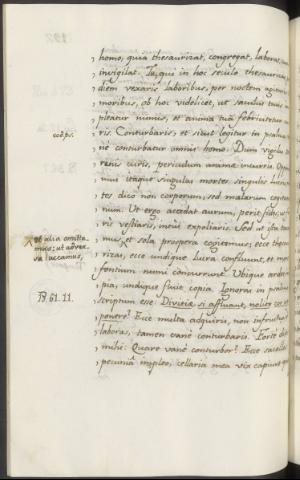 , homo, quia thesaurizat, congregat, laborat,
, invigilat. Tu, qui in hoc seculo thesaurizas,
, diem vexaris laboribus, per noctem agitaris
, moribus, ob hoc videlicet, ut sacculus tuus
, pleatur numis, et anima tua febricitet
, ris. Conturbaris; et sicut legitur in psalmo
, ne conturbatur omnis homo. Dum vigilas
, renis curis, periculum animæ incurris.
, mus itaque singulas mortes singulis
, tes dico non corporum, sed malorum
, num. Ut ergo accedat aurum, perit fides;
, ris vestiaris, intùs expoliaris. Sed ut ista
, mus, et sola prospera cogitemus; ecce
, rizas, ecce undique lucra confluunt, et more
, fontium numi concurrunt. Ubique
, pia, undique fluit copia. Ignoras in psalmo
, scriptum esse: Divitiæ si affluant, nolite cor
, ponere? Ecce multa adquiris, non infructuosè
, laboras, tamen vanè conturbaris. Fortè
, mihi: Quare vanè conturbor? Ecce
, pecuniâ impleo, cellaria mea vix capiunt
codps.
et alia omitta-
mus; ut adver-
sa taceamus,
Ps 61. 11.